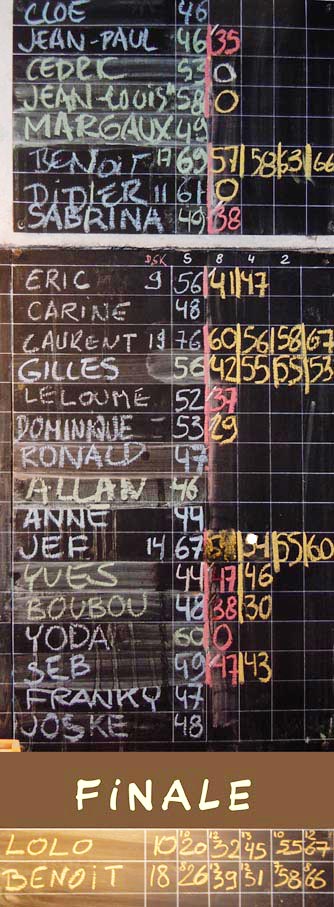 CLOE 46
JEAN-PAUL 46 35
CEDRIC 53 0
JEAN-LOUIS 58 0
MARGAUX 49
BENOIT 17 69 57 58 63 66
DIDIER 11 61 0
SABRINA 49 38
DSK S 8 4 2
ERIC 9 56 41 47
CARINE 48
LAURENT 19 76 60 56 58 67
GILLES 56 42 55 55 53
LELOUME 52 37
DOMINIQUE 53 29
RONALD 47
ALLAN 46
ANNE 44
JEF 14 67 54 55 60
YVES 44 17 46
BOUBOU 48 38 30
YODA 60 0
SEB 49 47 43
FRANKY 47
JOSKE 48
FiNALE
LOLO 10 10 20 12 32 13 45 10 55 12 67
BENOIT 18 8 26 13 39 12 51 7 58 8 66